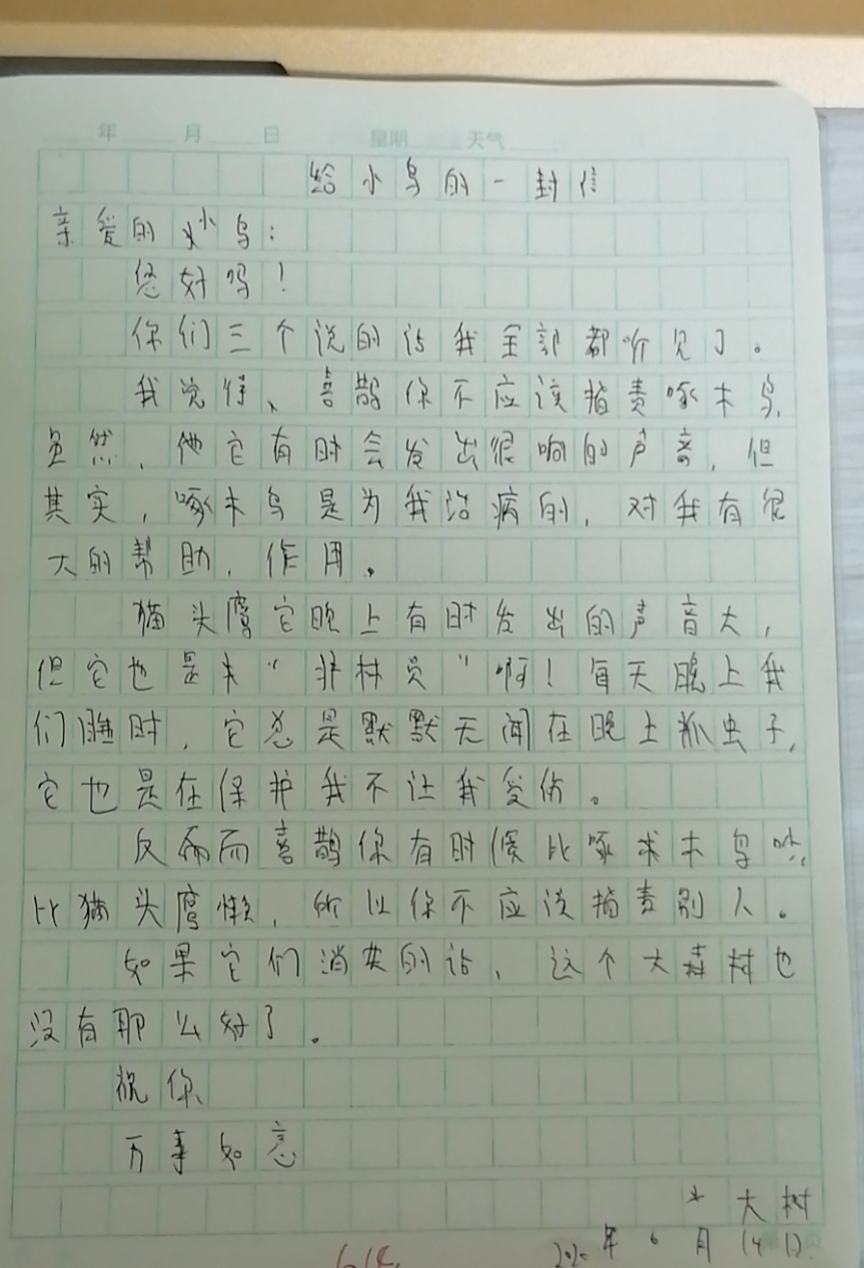 年 月 日 星期 天气
给小鸟的一封信
亲爱的小鸟:
您好吗!
你们三个说的话我全部都听见了。
我觉得、喜鹊你不应该指责啄木鸟,
虽然,他它有时会发出很响的声音,但
其实,啄木鸟是为我治病的,对我有很
大的帮助,作用。
猫头鹰它晚上有时发出的声音大,
但它也是“护林员”啊!每天晚上我
们睡时,它总是默默无闻在晚上抓虫子,
它也是在保护我不让我受伤。
反而而喜鹊你有时候比啄木鸟吵,
比猫头鹰懒,所以你不应该指责别人。
如果它们消失的话、这个大森林也
没有那么好了。
祝你、
万事如意
大树
年6月14日